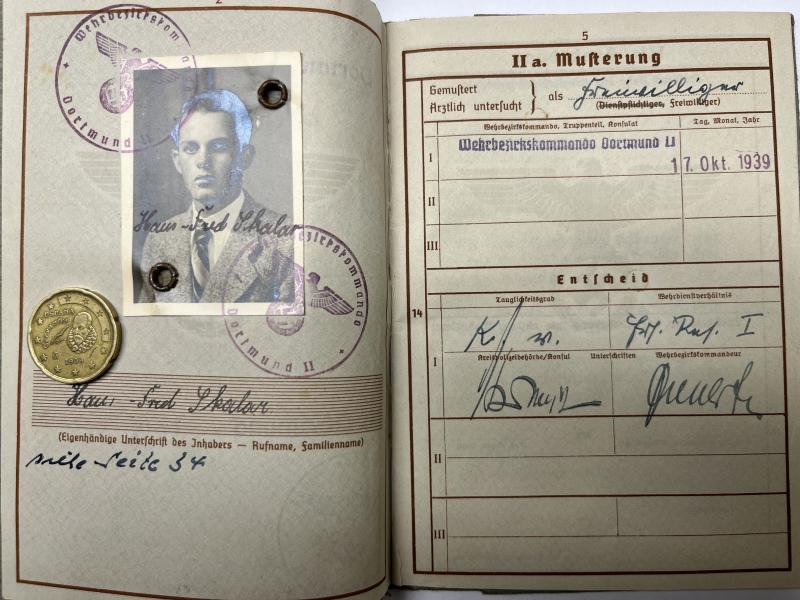 Wehrbezirkskommando
Dortmund II
Hans-Fred Skalar
Wehrbezirkskommando
Dortmund II
ESPAÑA
1999
Hans-Fred Skalar
(Eigenhändige Unterschrift des Inhabers — Rufname, Familienname)
siehe Seite 34
5
II a. Musterung
Gemustert
Ärztlich untersucht } als Freiwilliger
(Dienstpflichtiger, Freiwilliger)
Wehrbezirkskommando, Truppenteil, Konsulat Tag, Monat, Jahr
I Wehrbezirkskommando Dortmund II
17. Okt. 1939
II
III
Entscheid
14
Tauglichkeitsgrad Wehrdienstverhältnis
I
K. v. Ers. Res. I
Kreispolizeibehörde/Konsul Unterschriften Wehrbezirkskommandeur
II
III